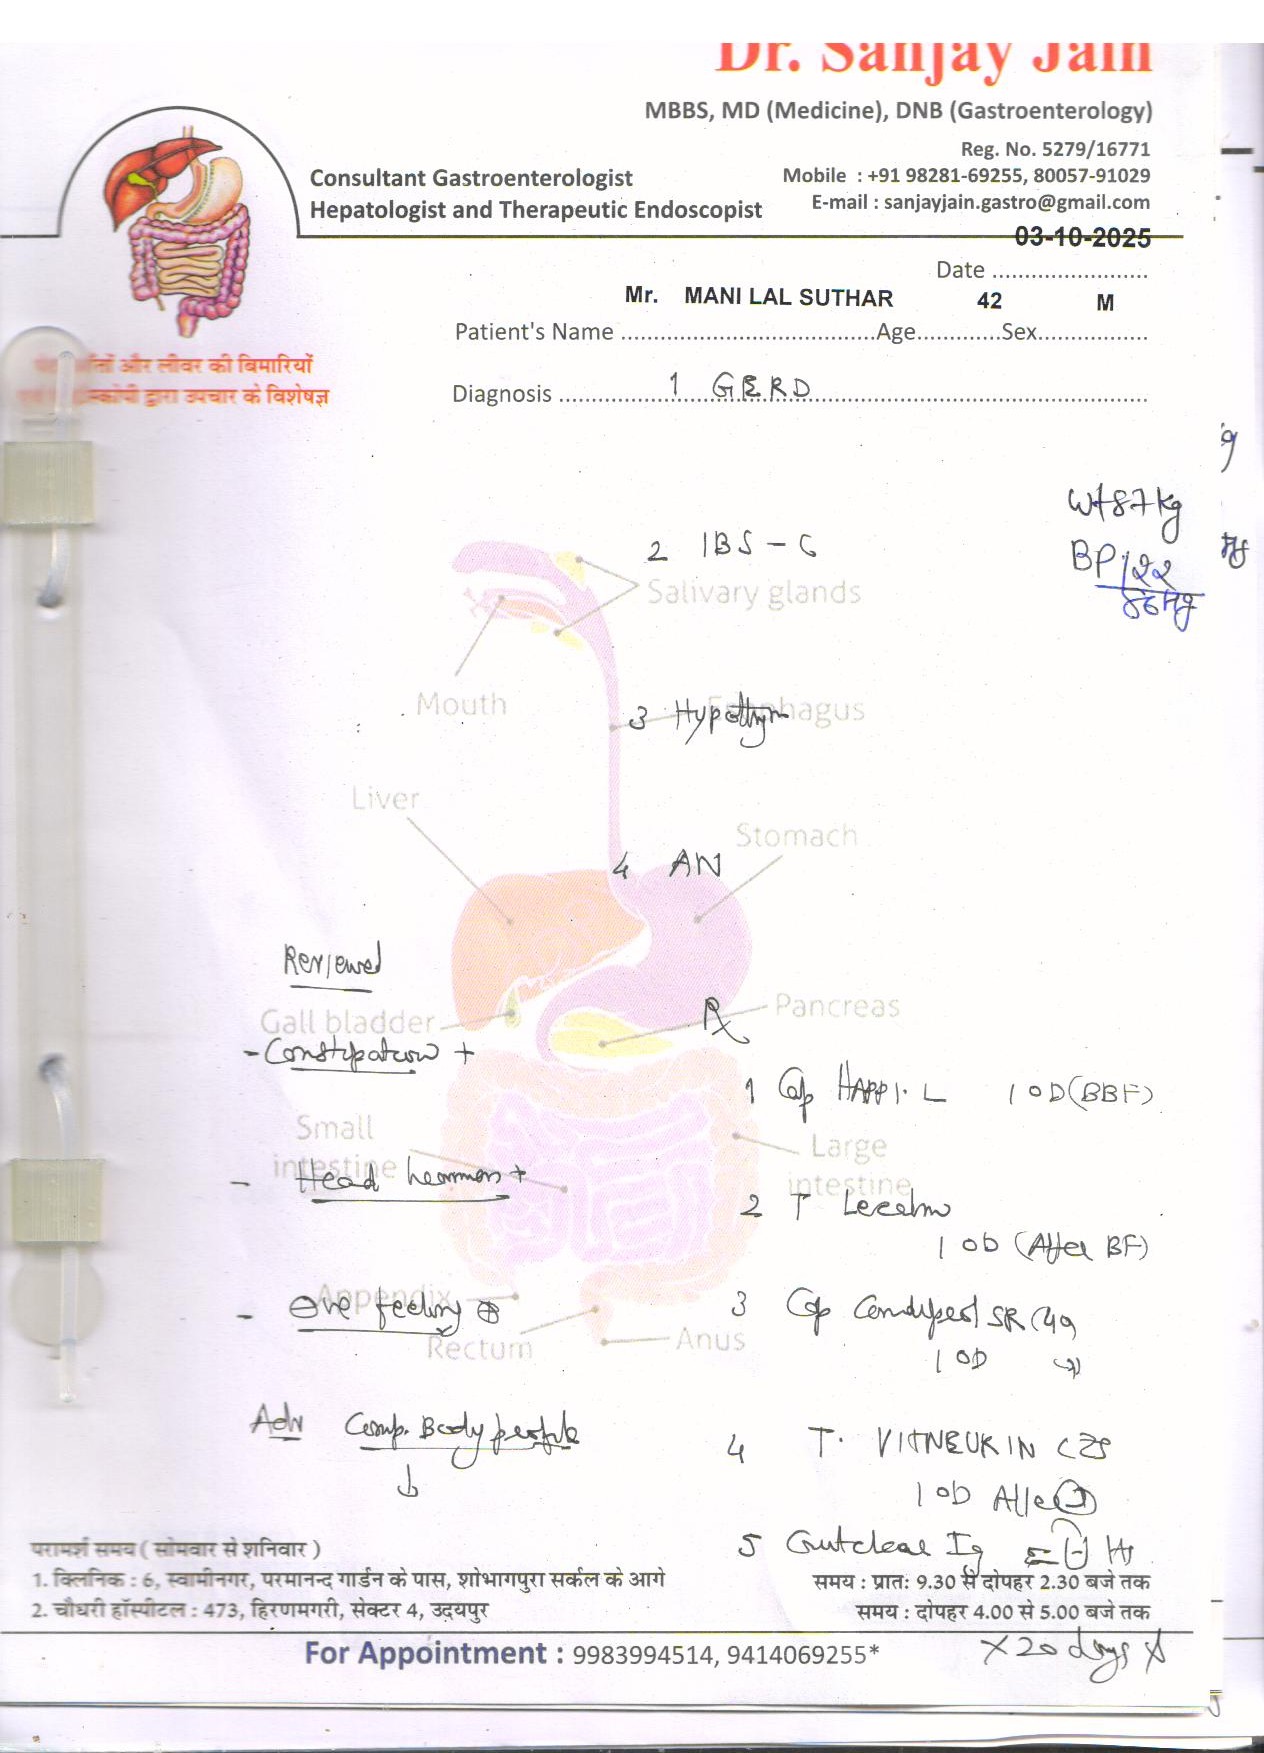 Dr. Sanjay Jain
MBBS, MD (Medicine), DNB (Gastroenterology)
Reg. No. 5279/16771
Consultant Gastroenterologist
Mobile : +91 98281-69255, 80057-91029
Hepatologist and Therapeutic Endoscopist
E-mail : sanjayjain.gastro@gmail.com
03-10-2025
Date ........................
Mr. MANI LAL SUTHAR 42 M
Patient's Name .......................................Age.............Sex.................
आँतों और लीवर की बिमारियों
द्वारा उपचार के विशेषज्ञ
Diagnosis 1 GERD
Wt 87 kg
2 IBS - C
BP 122
Salivary glands
Mouth
3 Hypothyr
Esophagus
Liver
Stomach
4 AN
Reviewed
Pancreas
Rx
Gall bladder
- Constipation +
1 Cap HAPPI. L 1 OD (BBF)
Small intestine
Large intestine
- Head +
2 T
1 OD (After BF)
Appendix
- feeling ⊕
3 Cap SR
Rectum
Anus
1 OD
Adv Comp. Body profile
4 T. VITNEURIN CZS
1 OD
परामर्श समय ( सोमवार से शनिवार )
5 Gutclear
1. क्लिनिक : 6, स्वामीनगर, परमानन्द गार्डन के पास, शोभागपुरा सर्कल के आगे
समय : प्रातः 9.30 से दोपहर 2.30 बजे तक
2. चौधरी हॉस्पीटल : 473, हिरणमगरी, सेक्टर 4, उदयपुर
समय : दोपहर 4.00 से 5.00 बजे तक
For Appointment : 9983994514, 9414069255*
x 20 days